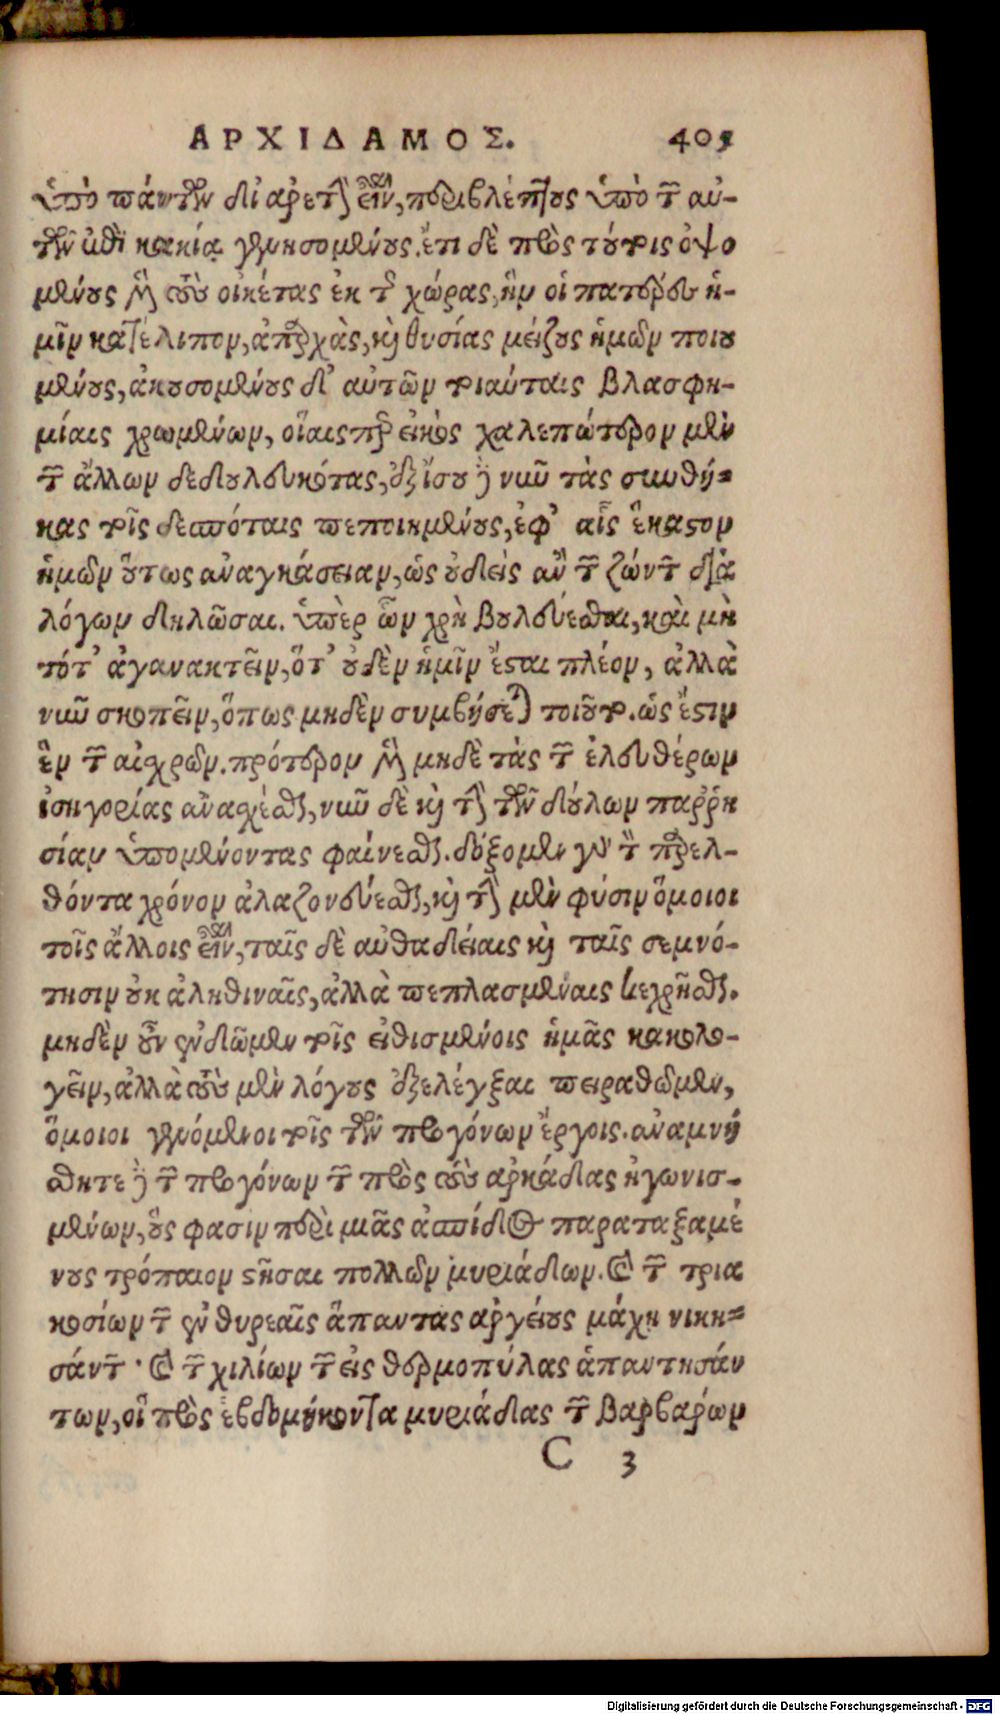 ΑΡΧΙΔΑΜΟΣ. 405
ὑπὸ πάντων δι' ἀρετὴν εἶναι, περιβλέπτους ὑπὸ τῶν αὐ-
τῶν ἐπὶ κακίᾳ γενησομένους. ἔτι δὲ πρὸς τούτοις ὀψο
μένους μὲν τοὺς οἰκέτας ἐκ τῆς χώρας, ἣν οἱ πατέρες ἡ-
μῖν κατέλιπον, ἀπαρχὰς, καὶ θυσίας μείζους ἡμῶν ποιου
μένους, ἀκουσομένους δ' αὐτῶν τοιαύταις βλασφη-
μίαις χρωμένων, οἵαις περ εἰκὸς χαλεπώτερον μὲν
τῶν ἄλλων δεδουλευκότας, ἐξ ἴσου δὲ νῦν τὰς συνθή-
κας τοῖς δεσπόταις πεποιημένους, ἐφ' αἷς ἕκαστον
ἡμῶν οὕτως ἀναγκάσειαν, ὡς οὐδεὶς ἂν τῶν ζώντων διὰ
λόγων δηλῶσαι. ὑπὲρ ὧν χρὴ βουλεύεσθαι, καὶ μὴ
τότ' ἀγανακτεῖν, ὅτ' οὐδὲν ἡμῖν ἔσται πλέον, ἀλλὰ
νῦν σκοπεῖν, ὅπως μηδὲν συμβήσεται τοιοῦτο. ὡς ἔστιν
ἓν τῶν αἰσχρῶν. πρότερον μὲν μηδὲ τὰς τῶν ἐλευθέρων
ἰσηγορίας ἀνασχέσθαι, νῦν δὲ καὶ τὴν τῶν δούλων παῤῥη
σίαν ὑπομένοντας φαίνεσθαι. δόξομεν γὰρ τὸν παρελ-
θόντα χρόνον ἀλαζονεύεσθαι, καὶ τὴν μὲν φύσιν ὅμοιοι
τοῖς ἄλλοις εἶναι, ταῖς δὲ αὐθαδείαις καὶ ταῖς σεμνό-
τησιν οὐκ ἀληθιναῖς, ἀλλὰ πεπλασμέναις κεχρῆσθαι.
μηδὲν οὖν ἐνδῶμεν τοῖς εἰθισμένοις ἡμᾶς κακολο-
γεῖν, ἀλλὰ τοὺς μὲν λόγους ἐξελέγξαι πειραθῶμεν,
ὅμοιοι γενόμενοι τοῖς τῶν προγόνων ἔργοις. ἀναμνή
σθητε δὲ τῶν προγόνων τῶν πρὸς τοὺς ἀρκάδας ἠγωνισ-
μένων, οὕς φασιν περὶ μιᾶς ἀσπίδος παραταξαμέ
νους τρόπαιον στῆσαι πολλῶν μυριάδων. καὶ τῶν τρια
κοσίων τῶν ἐν θυρεαῖς ἅπαντας ἀργείους μάχῃ νικη-
σάντων. καὶ τῶν χιλίων τῶν εἰς θερμοπύλας ἀπαντησάν
των, οἳ πρὸς ἑβδομήκοντα μυριάδας τῶν βαρβάρων
C 3
Digitalisierung gefördert durch die Deutsche Forschungsgemeinschaft - DFG